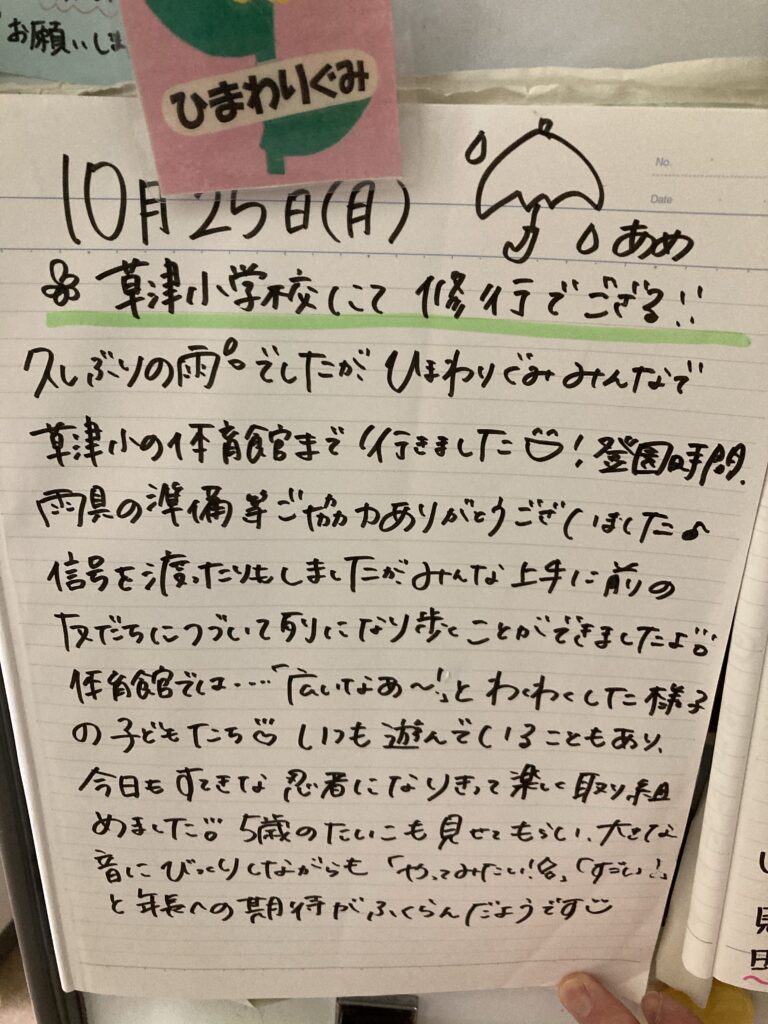 お願いしま
ひまわりぐみ
No.
Date
10月25日(月)
あめ
草津小学校にて 修行でござる!!
久しぶりの雨でしたが、ひまわりぐみみんなで
草津小の体育館まで行きました!登園時間、
雨具の準備等ご協力ありがとうございました♪
信号を渡ったりもしましたが、みんな上手に前の
友だちにつづいて列になり歩くことができましたよ
体育館では…「広いなあ〜!」とわくわくした様子
の子どもたち いつも遊んでいることもあり、
今日もすてきな忍者になりきって楽しく取り組
めました 5歳のたいこも見せてもらい、大きな
音にびっくりしながらも「やってみたい!」「すごい!」
と年長への期待がふくらんだようです